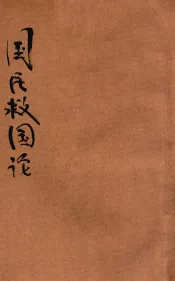 国民救国论